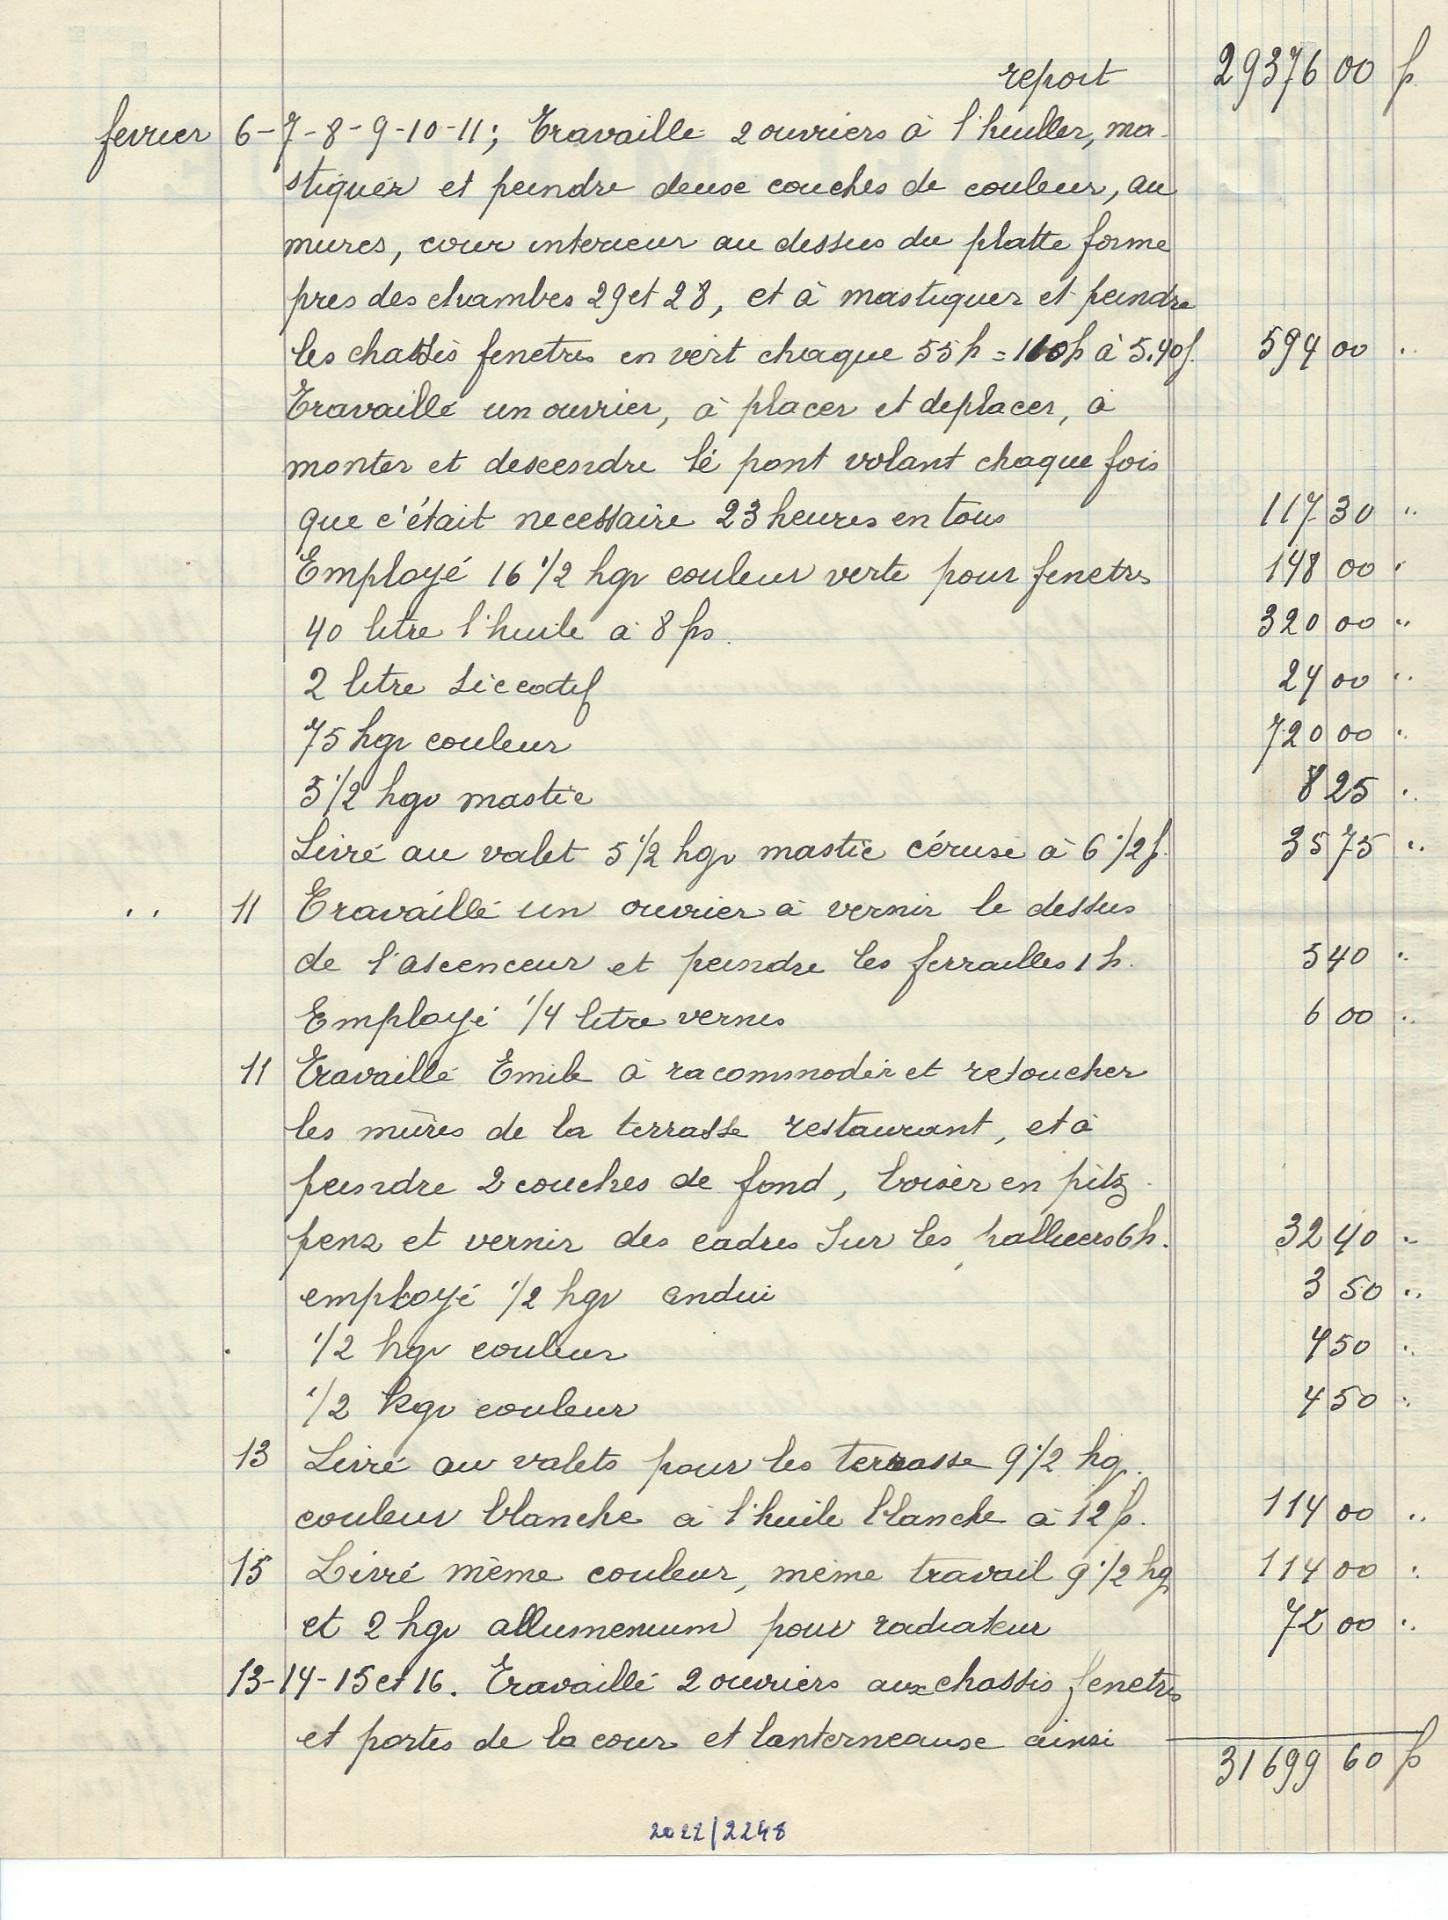 report 29376 00 f
fevrier 6-7-8-9-10-11; Travaille 2 ouvriers à l'huiller, ma-
stiquer et peindre deuxe couches de couleur, au
mures, cour interieur au dessus du platte forme
pres des chambres 29 et 28, et à mastiquer et peindre
les chassis fenetres en vert chaque 55 h = 110 h à 5.40 f. 594 00 "
Travaillé un ouvrier, à placer et deplacer, à
monter et descendre le pont volant chaque fois
que c'était necessaire 23 heures en tous 117 30 "
Employé 16 1/2 kgr couleur verte pour fenetres 148 00 "
40 litre l'huile à 8 fs. 320 00 "
2 litre siccatif 24 00 "
75 kgr couleur 720 00 "
5 1/2 kgr mastic 8 25 "
Livré au valet 5 1/2 kgr mastic céruse à 6 1/2 f. 35 75 "
" 11 Travaillé un ouvrier à vernir le dessus
de l'ascenceur et peindre les ferrailles 1 h. 5 40 "
Employé 1/4 litre vernis 6 00 "
11 Travaillé Emile à racommoder et retoucher
les mures de la terrasse restaurant, et à
peindre 2 couches de fond, boiser en pitz-
penz et vernir des cadres sur les halliers 6 h. 32 40 "
employé 1/2 kgr endui 3 50 "
1/2 kgr couleur 4 50 "
1/2 kgr couleur 4 50 "
13 Livré au valets pour les terrasse 9 1/2 kg.
couleur blanche à l'huile blanche à 12 f. 114 00 "
15 Livré même couleur, même travail 9 1/2 kg 114 00 "
et 2 kgr allumenium pour radiateur 72 00 "
13-14-15 et 16. Travaillé 2 ouvriers aux chassis fenetres
et portes de la cour et lanterneause ainsi
31699 60 f
2022/2248